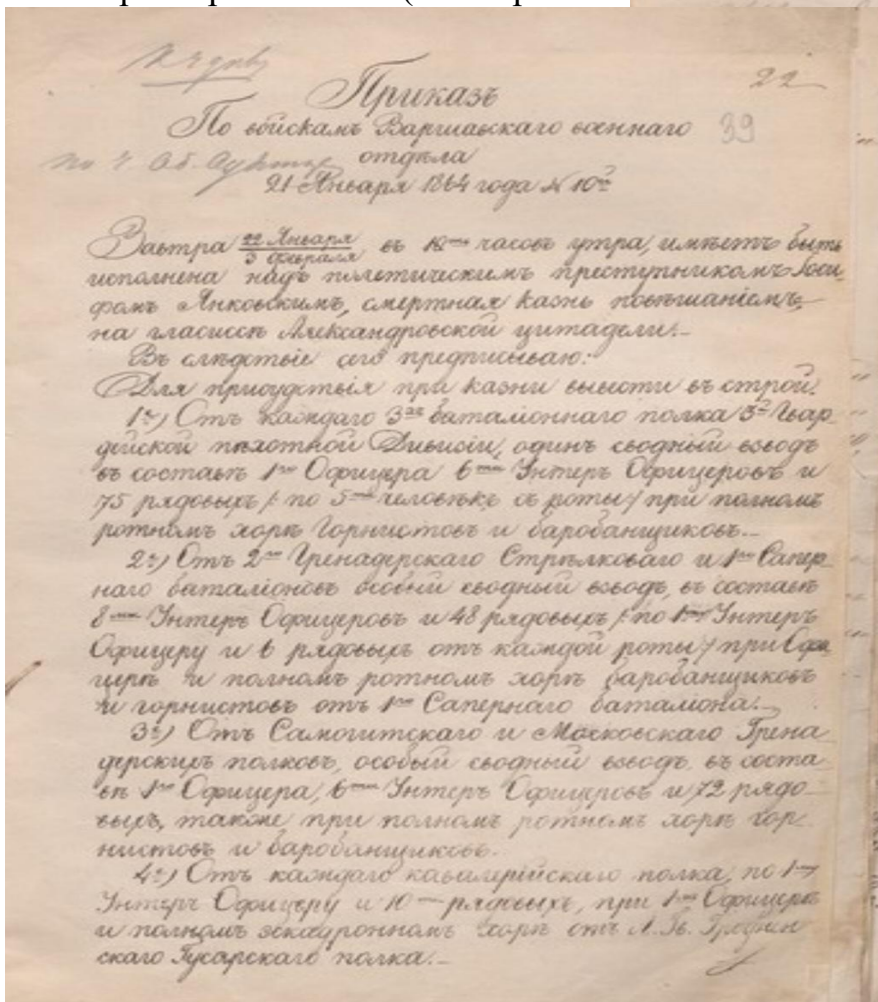 22
Приказъ
По войскамъ Варшавскаго военнаго
39
отдѣла
21 Января 1864 года № 10й
Завтра 22 Января / 3 февраля въ 10ть часовъ утра, имѣетъ быть
исполнена надъ политическимъ преступникомъ Іоси-
фомъ Янковскимъ, смертная казнь повѣшаніемъ,
на гласисѣ Александровской цитадели.–
Въ слѣдствіе сего предписываю:
Для присудствія при казни вывести въ строй.
1е) Отъ каждаго 3хъ баталіоннаго полка 3й Гвар-
дейской пѣхотной Дивизіи, одинъ сводный взводъ
въ составѣ 1го Офицера 6ти Унтеръ Офицеровъ и
75 рядовыхъ /: по 5ти человѣкъ съ роты :/ при полномъ
ротномъ хорѣ Горнистовъ и барабанщиковъ.–
2е) Отъ 2го Гренадерскаго Стрѣлковаго и 1го Сапер-
наго баталіоновъ особый сводный взводъ, въ составѣ
8ми Унтеръ Офицеровъ и 48 рядовыхъ /: по 1му Унтеръ
Офицеру и 6 рядовыхъ отъ каждой роты :/ при Офи-
церѣ и полномъ ротномъ хорѣ барабанщиковъ
и горнистовъ отъ 1го Сапернаго баталіона.–
3е) Отъ Самогитскаго и Московскаго Грена-
дерскихъ полковъ, особый сводный взводъ, въ соста-
вѣ 1го Офицера, 6ти Унтеръ Офицеровъ и 72 рядо-
выхъ, также при полномъ ротномъ хорѣ гор-
нистовъ и барабанщиковъ.
4е) Отъ каждаго кавалерійскаго полка, по 1му
Унтеръ Офицеру и 10 рядовыхъ, при 1мъ Офицерѣ
и полномъ эскадронномъ хорѣ отъ Л. Гв. Гроднен-
скаго Гусарскаго полка.–